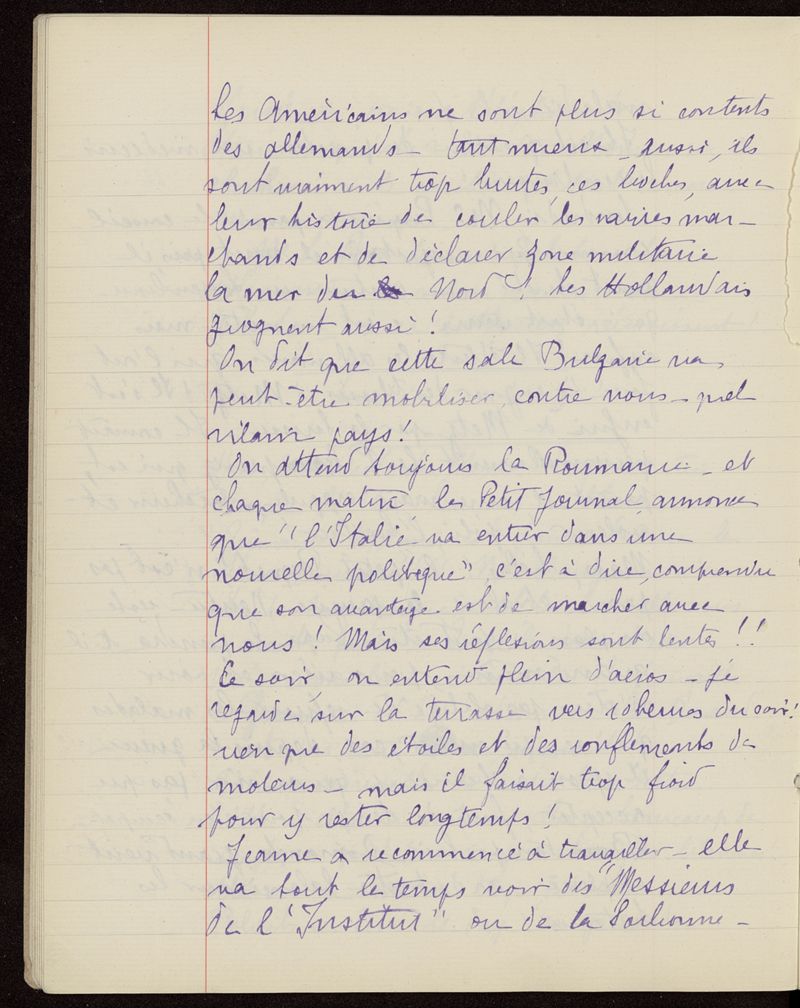 Les Américains ne sont plus si contents
des allemands – tant mieux – aussi, ils
sont vraiment trop brutes, ces boches, avec
leur histoire de couler les navires mar-
chands et de déclarer zone militaire
la mer du Nord ! Les Hollandais
grognent aussi !
On dit que cette sale Bulgarie va
peut-être mobiliser contre nous – quel
vilain pays !
On attend toujours la Roumanie – et
chaque matin le Petit Journal annonce
que "l'Italie va entrer dans une
nouvelle politique" c'est à dire, comprendre
que son avantage est de marcher avec
nous ! Mais ses réflexions sont lentes !!
Ce soir on entend plein d'aéros – je
regarde, sur la terrasse vers 10 heures du soir !
rien que des étoiles et des ronflements de
moteurs – mais il faisait trop froid
pour y rester longtemps !
Jeanne a recommencé à travailler – elle
va tout le temps voir des "Messieurs
de l'Institut" ou de la Sorbonne –